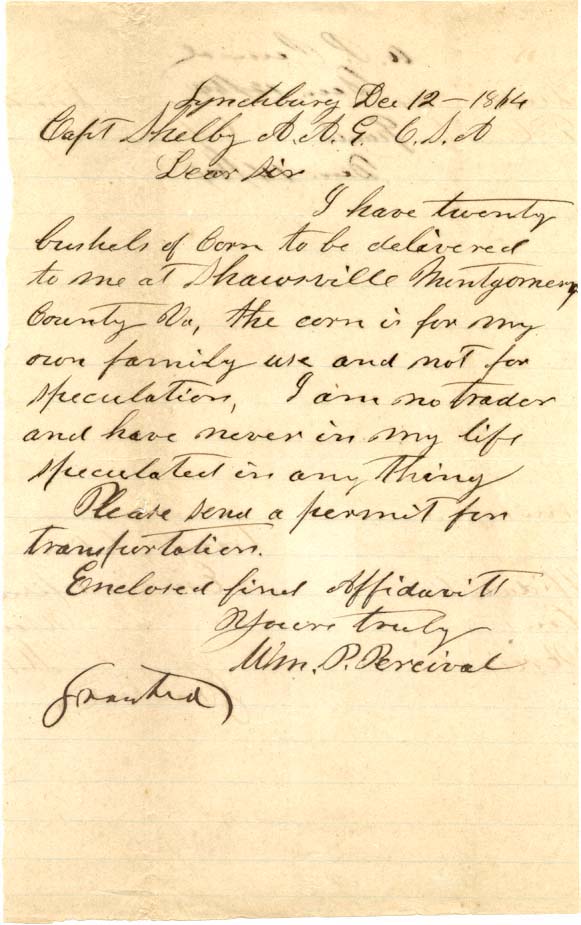 Lynchburg Dec 12 - 1864
Capt Shelby A. A. G. C. S. A
Dear Sir
I have twenty
bushels of Corn to be delivered
to me at Shawsville Montgomery
County Va, the corn is for my
own family use and not for
speculation, I am no trader
and have never in my life
speculated in any thing
Please send a permit for
transportation.
Enclosed find Affidavitt
Yours truly
Wm. P. Percival
Granted